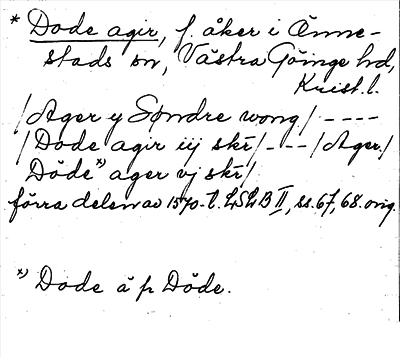 * Dode agir, f. åker i Önne-
stads sn, Västra Göinge hd,
Krist. l.
/Ager y Søndre wong/ ----
/Dode agir iij skr/ --- /Ager/
Döde*) ager vj skr/
förra delen av 1570-t. LSLB II, ss. 67, 68. orig.
*) Dode å p Döde.